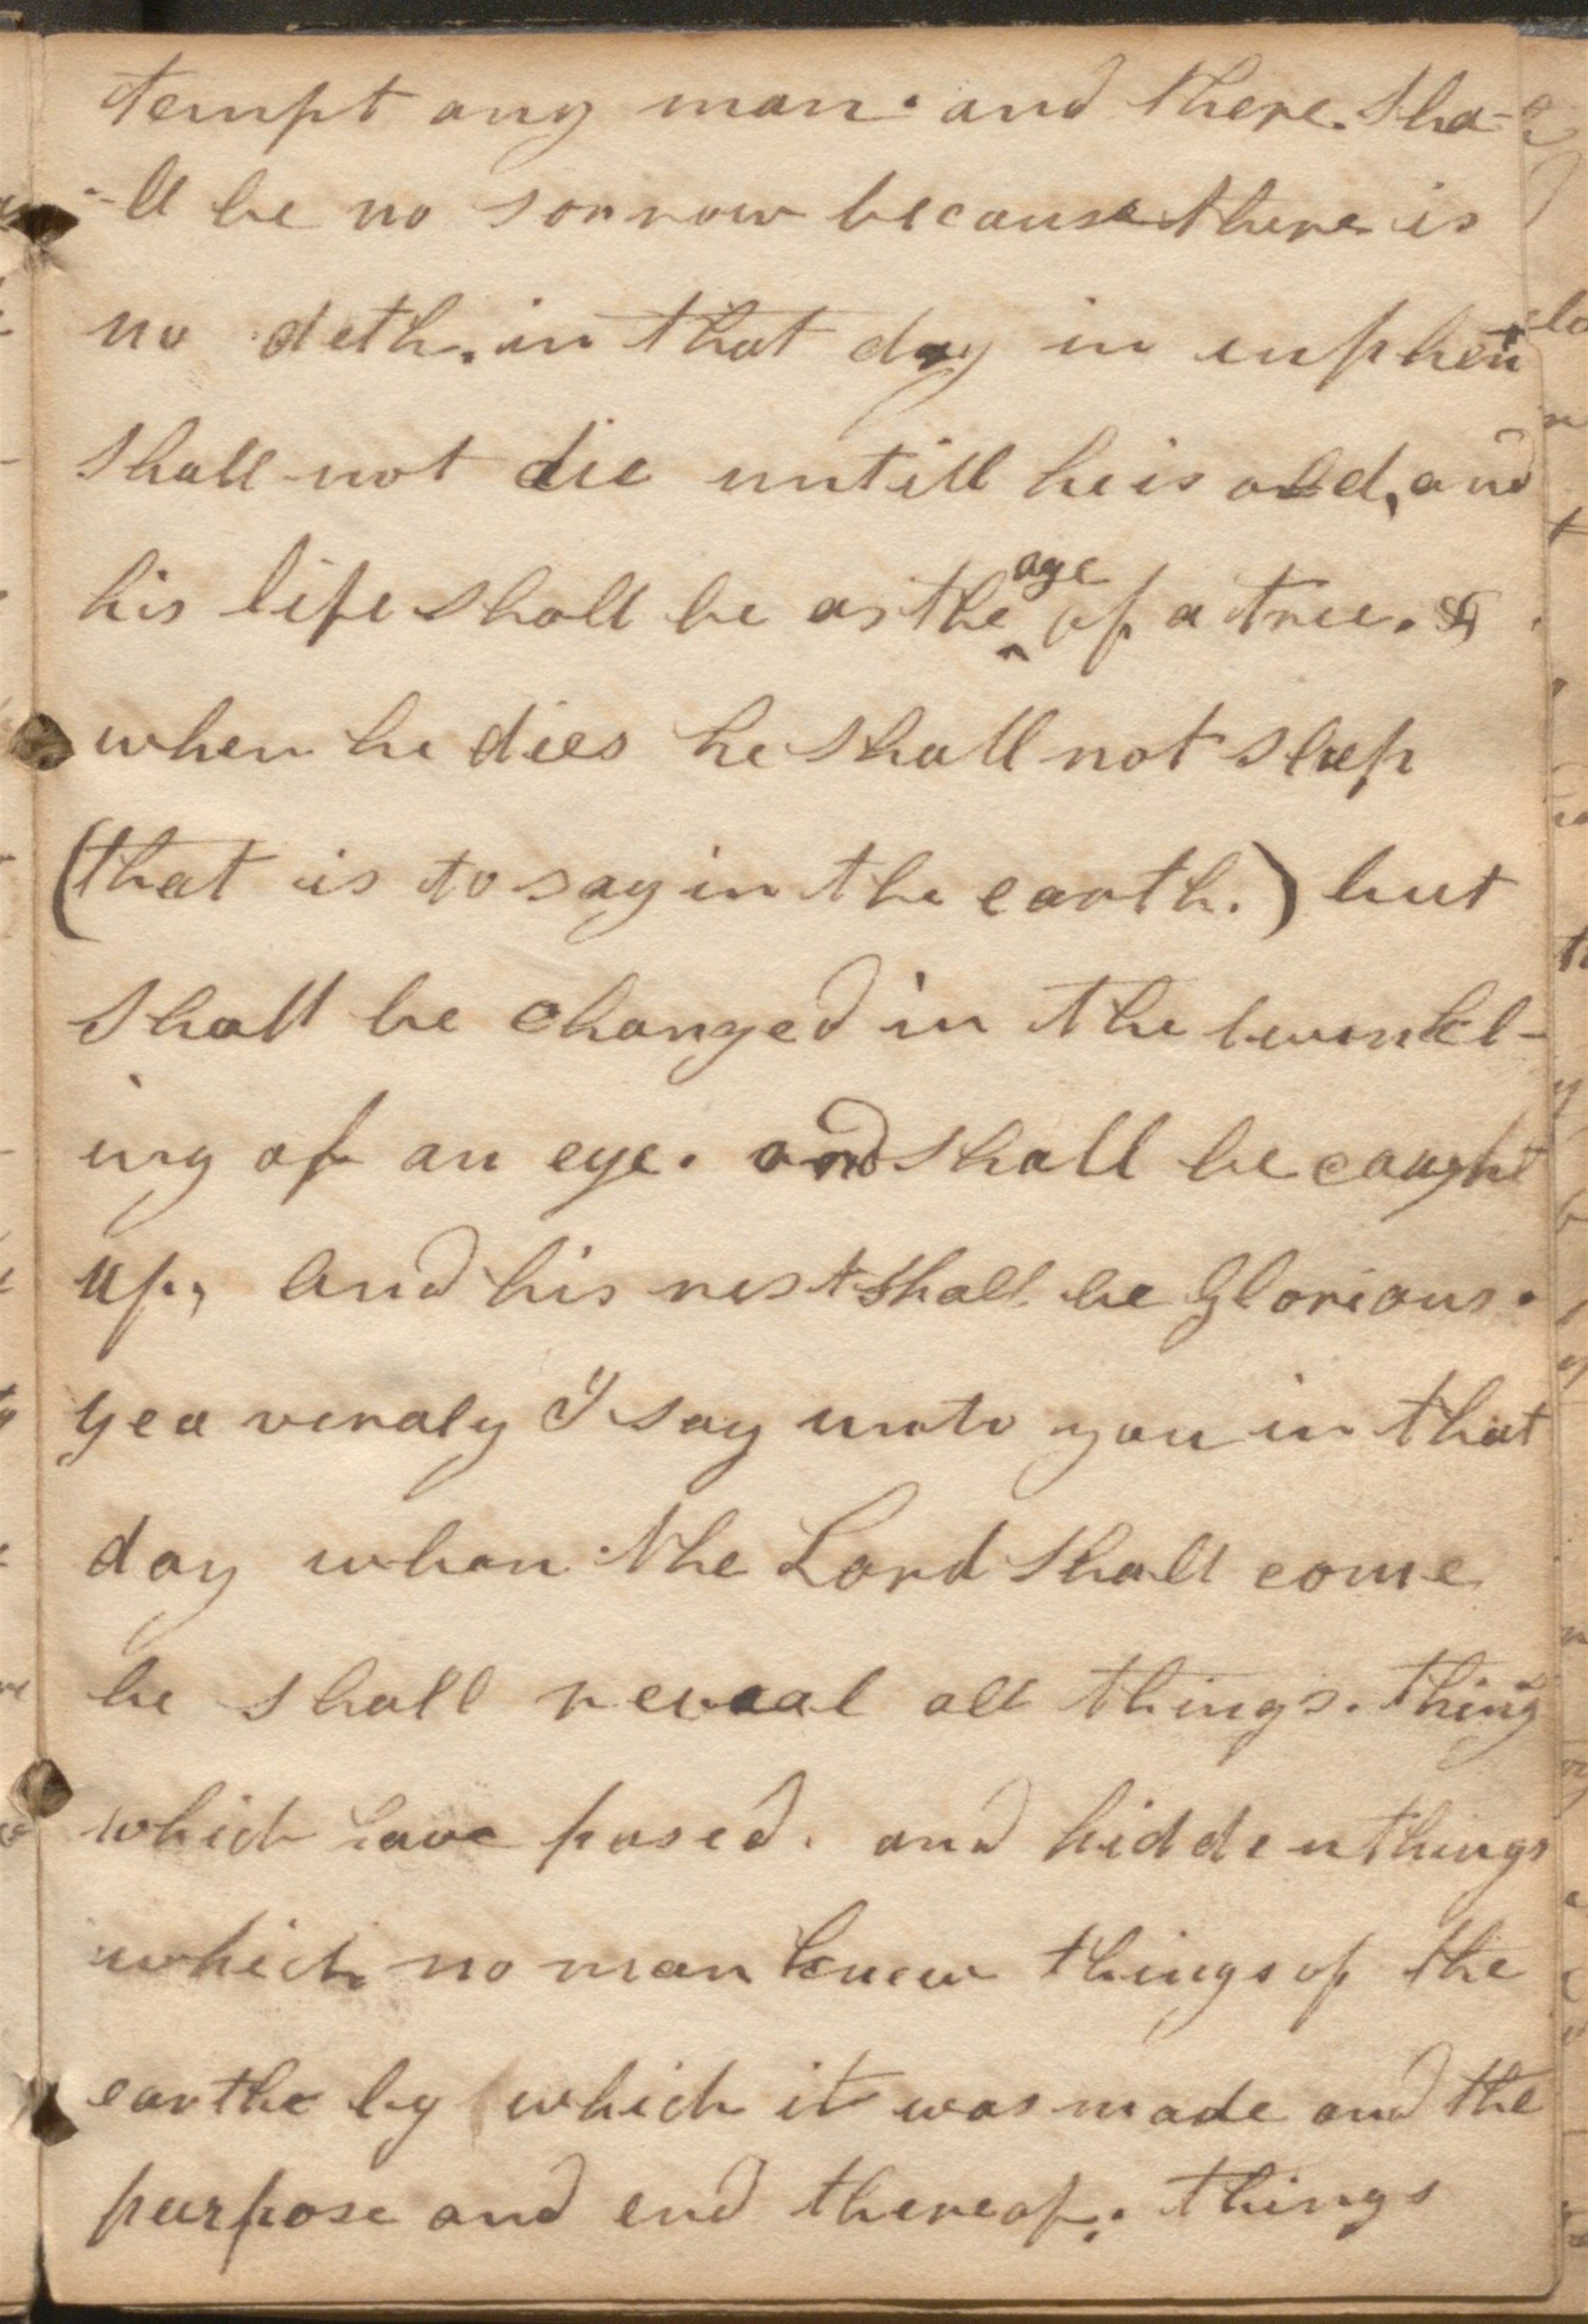 tempt any man. and there sha-
-ll be no sorrow because there is
no deth. in that day in inphent
shall not die untill he is old, and
his life shall be as the age of a tree. &
when he dies he shall not sleep
(that is to say in the earth.) but
shall be changed in the twinkl-
ing of an eye. and shall be caught
up, and his rest shall be glorious.
yea veraly I say unto you in that
day when the Lord shall come
he shall reveal all things. things
which have pased. and hidden things
which no man knew things of the
earthe by which it was made and the
purpose and end thereof. things